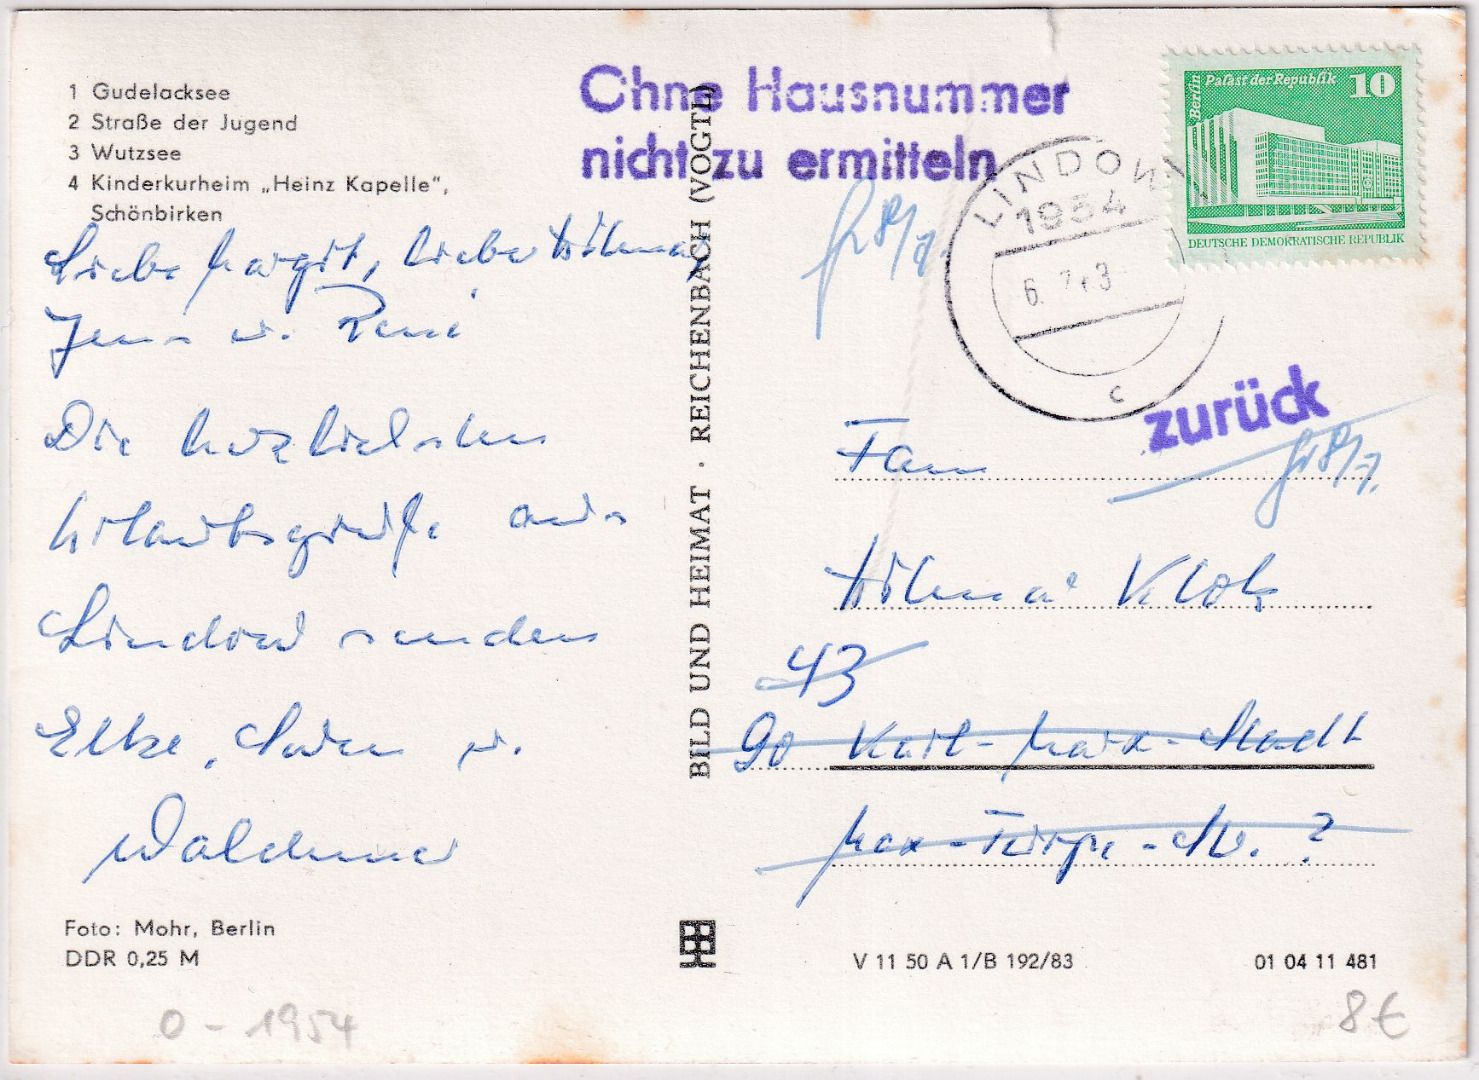 1 Gudelacksee
2 Straße der Jugend
3 Wutzsee
4 Kinderkurheim „Heinz Kapelle“,
Schönbirken
Liebe Margit, lieber Hilmar,
Jens u. René
Die herzlichsten
Urlaubsgrüße aus
Lindow senden
Elke, u.
Waldemar
Foto: Mohr, Berlin
DDR 0,25 M
0 - 1954
BILD UND HEIMAT · REICHENBACH (VOGTL)
Ohne Hausnummer
nicht zu ermitteln
Berlin
Palast der Republik
10
DEUTSCHE DEMOKRATISCHE REPUBLIK
LINDOW
1954
c
zurück
Fam
Hilmar Klotz
43
90 Karl-Marx-Stadt
Max-Türpe-Str. ?
V 11 50 A 1/B 192/83
01 04 11 481
8 €